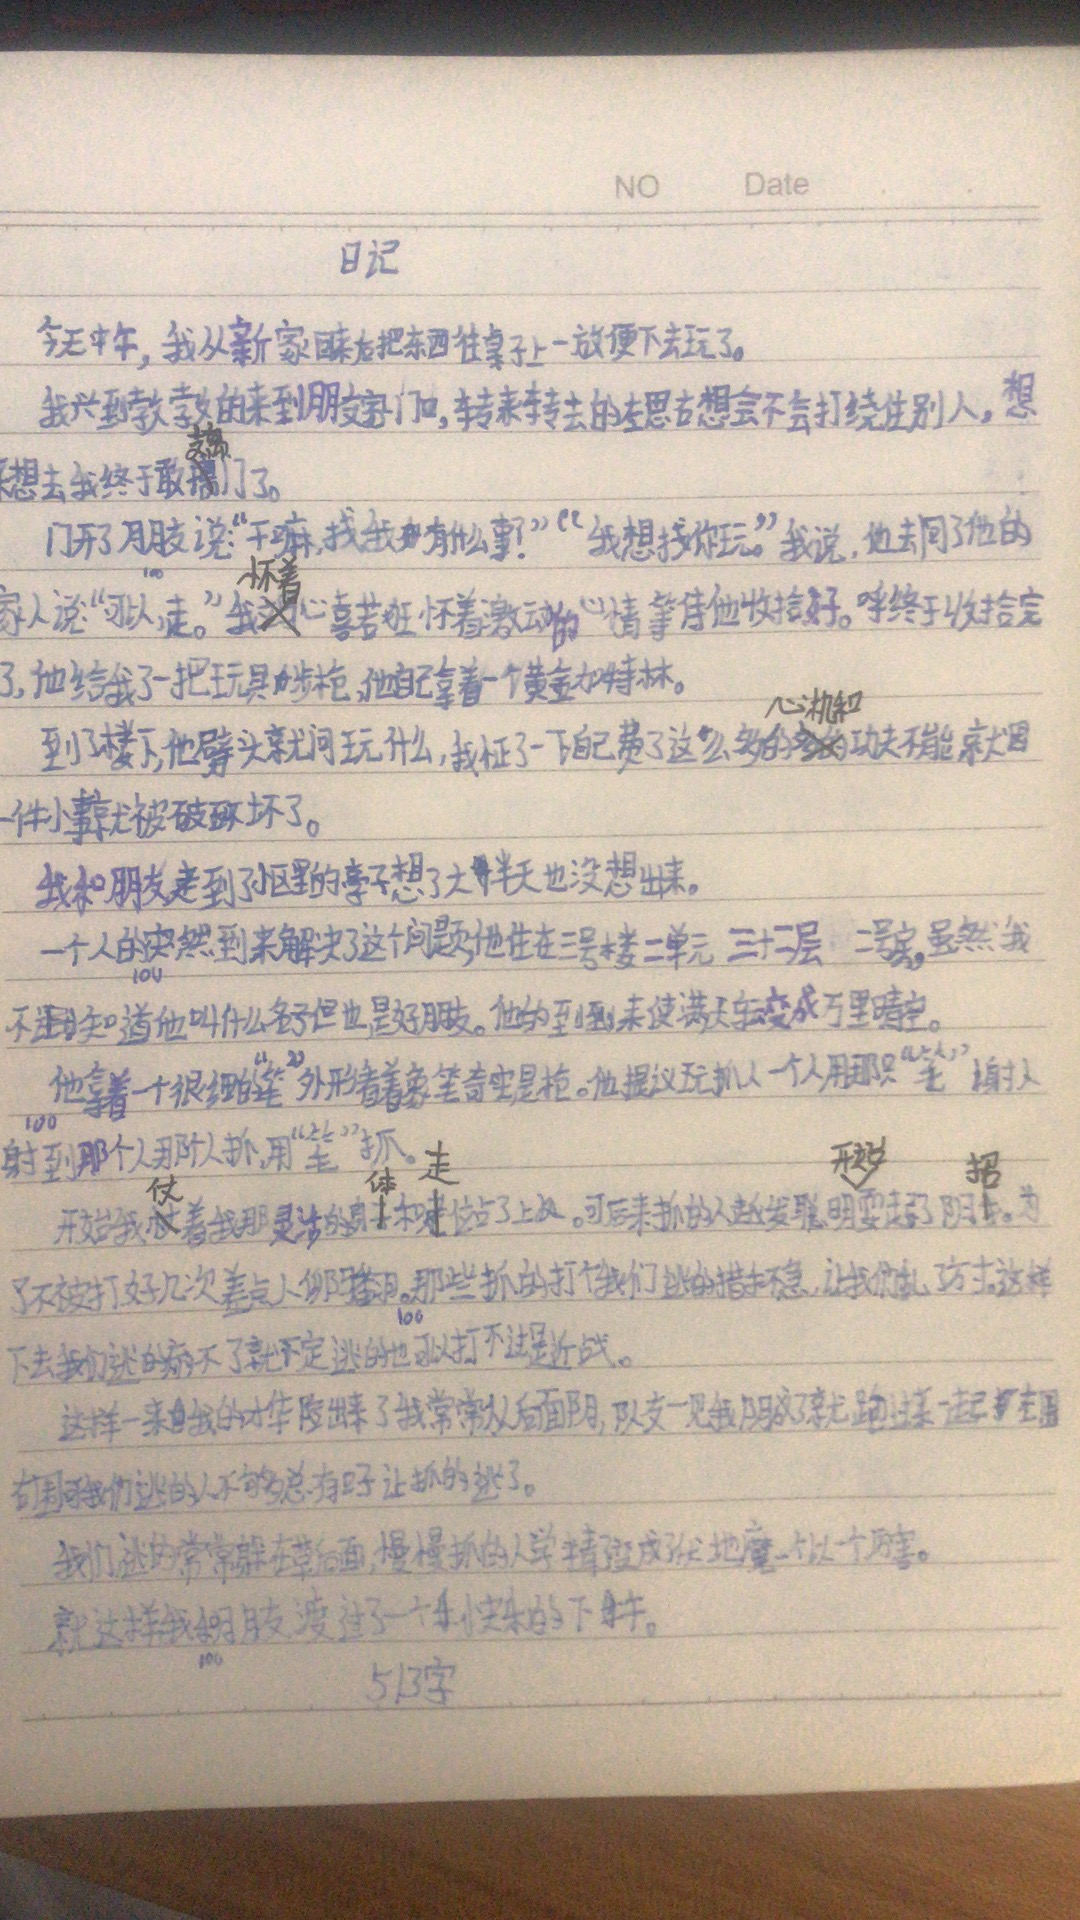 NO Date
日记
今天中午，我从新家回来后把东西往桌子上一放便下去玩了。
我兴致勃勃的来到朋友家门口，转来转去的左思右想会不会打绕住别人，想
来想去我终于敢敲门了。
门开了朋友说：“干嘛，找我有什么事！”“我想找你玩。”我说，他去问了他的
怀着
家人说“可以，走。”我心喜若狂怀着激动的心情等待他收拾好。呼终于收拾完
了，他给我了一把玩具步枪，他自己拿着一个黄金加特林。
心机和
到了楼下，他劈头就问玩什么，我怔了一下自己费了这么多的功夫不能就因
一件小事就被破坏了。
我和朋友走到了小区里的亭子想了大半天也没想出来。
一个人的突然到来解决了这个问题，他住在三号楼二单元 三十二层 二号房，虽然我
100
不知道他叫什么名子但也是好朋友。他的到来使满天乌云变成万里晴空。
他拿着一个很细的“笔”外形看着象笔奇实是枪。他提议玩抓人一个人用那只“笔”射人
100
射到那个人那个人抓，用“笔”抓。
仗 体 走 开始 招
开始我着我那灵活的身和位占了上风。可后来抓的人越发聪明耍起了阴。为
了不被打好几次差点人仰马翻。那些抓的打我们逃的措手不急，让我们乱了方寸，这样
100
下去我们逃的病不了就不定逃的也可以打不过是近战。
这样一来我的才华险出来了我常常从后面阴，队友一见我阴成了就跑过来一起左围
右围我们逃的人不够多总有日子让抓的逃了。
我们逃的常常躲在草后面，慢慢抓的人学精了变成了伏地魔一个比一个厉害。
就这样我和朋友渡过了一个快乐的下午。
100
513字